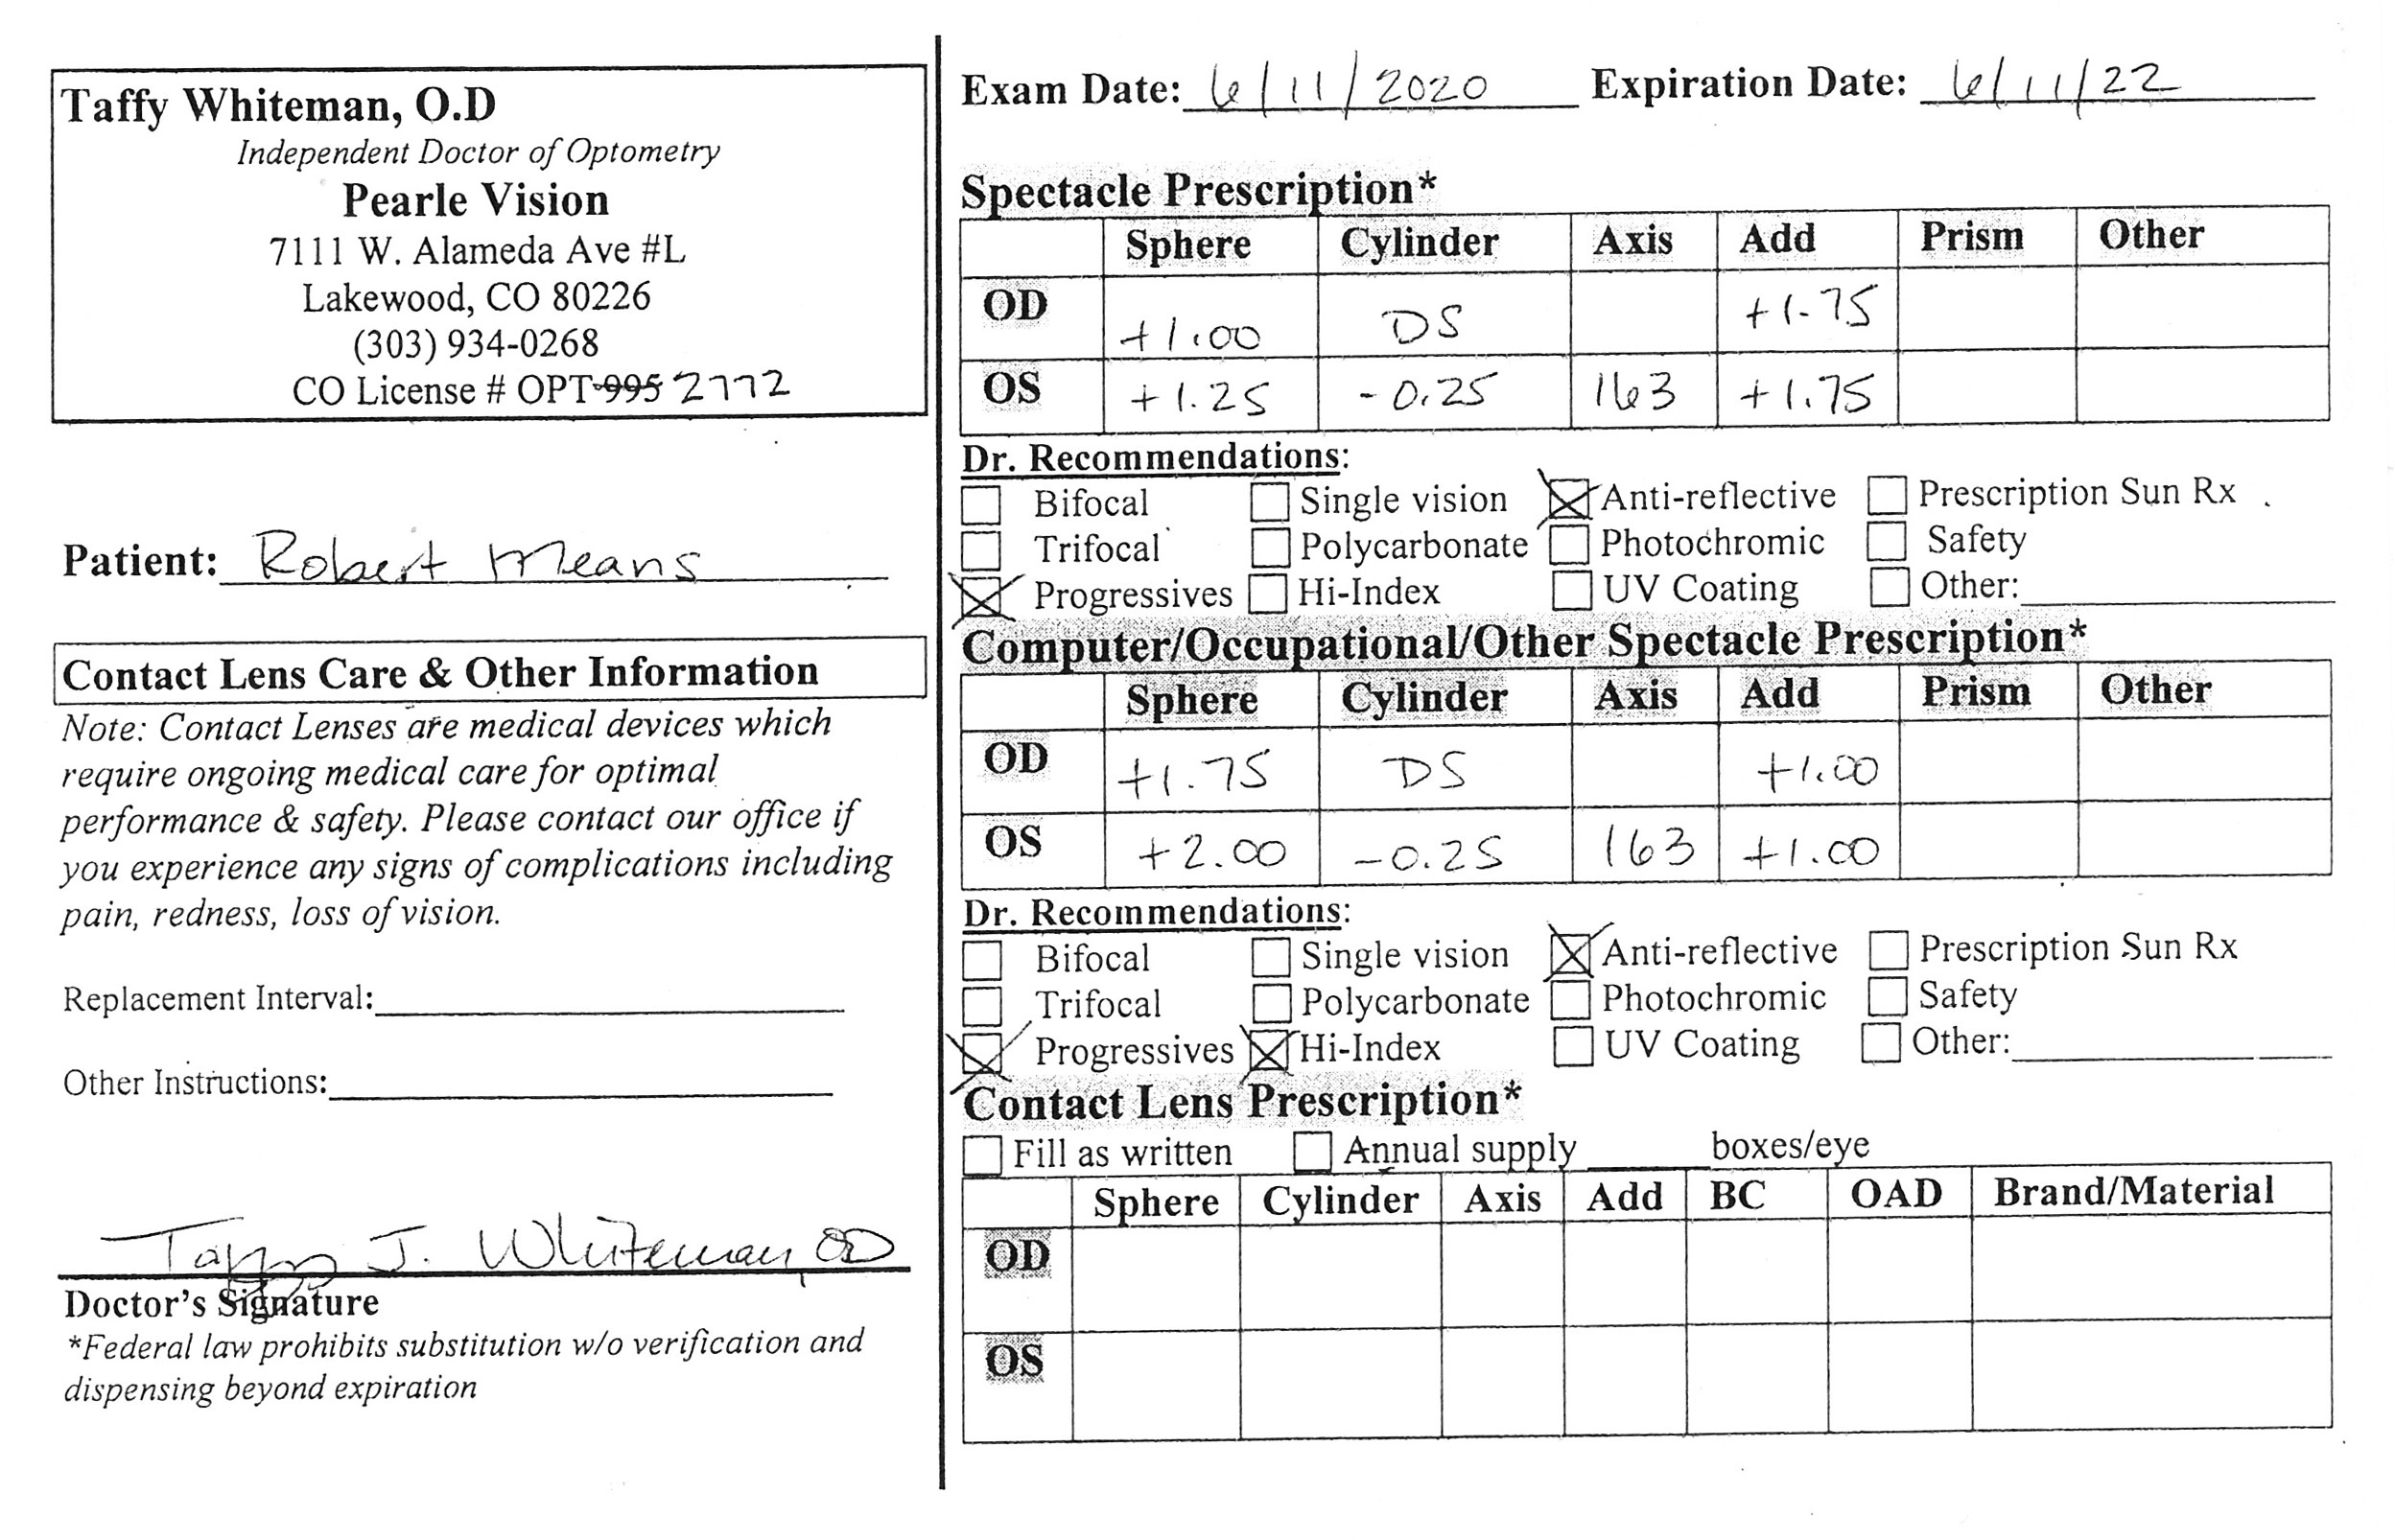 Taffy Whiteman, O.D
Independent Doctor of Optometry
Pearle Vision
7111 W. Alameda Ave #L
Lakewood, CO 80226
(303) 934-0268
CO License # OPT-995 2772
Patient: Robert Means
Contact Lens Care & Other Information
Note: Contact Lenses are medical devices which
require ongoing medical care for optimal
performance & safety. Please contact our office if
you experience any signs of complications including
pain, redness, loss of vision.
Replacement Interval:
Other Instructions:
Taffy J. Whiteman, OD
Doctor's Signature
*Federal law prohibits substitution w/o verification and
dispensing beyond expiration
Exam Date: 6/11/2020 Expiration Date: 6/11/22
Spectacle Prescription*
Sphere Cylinder Axis Add Prism Other
OD +1.00 DS +1.75
OS +1.25 -0.25 163 +1.75
Dr. Recommendations:
Bifocal Single vision Anti-reflective Prescription Sun Rx
Trifocal Polycarbonate Photochromic Safety
Progressives Hi-Index UV Coating Other:
Computer/Occupational/Other Spectacle Prescription*
Sphere Cylinder Axis Add Prism Other
OD +1.75 DS +1.00
OS +2.00 -0.25 163 +1.00
Dr. Recommendations:
Bifocal Single vision Anti-reflective Prescription Sun Rx
Trifocal Polycarbonate Photochromic Safety
Progressives Hi-Index UV Coating Other:
Contact Lens Prescription*
Fill as written Annual supply boxes/eye
Sphere Cylinder Axis Add BC OAD Brand/Material
OD
OS